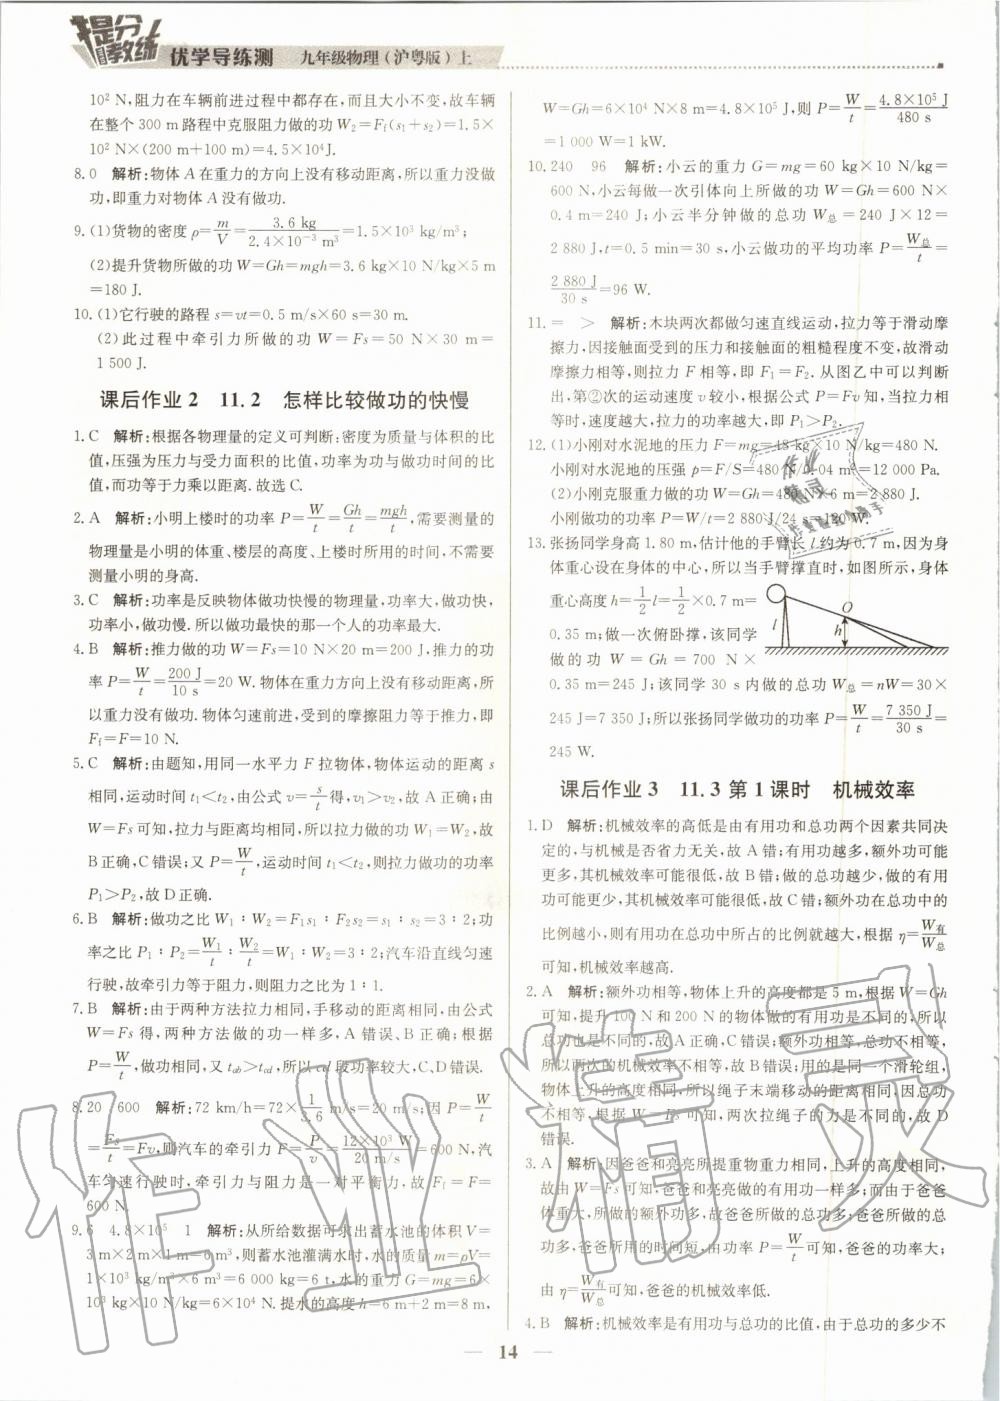 提分教练
优学导练测 九年级物理(沪粤版)上
10² N,阻力在车辆前进过程中都存在,而且大小不变,故车辆
在整个 300 m 路程中克服阻力做的功 W₂=Ff(s₁+s₂)=1.5×
10² N×(200 m+100 m)=4.5×10⁴J.
8.0 解析:物体 A 在重力的方向上没有移动距离,所以重力没做
功,即重力对物体 A 没有做功.
9.(1)货物的密度 ρ=m/V=3.6 kg/2.4×10⁻³ m³=1.5×10³ kg/m³;
(2)提升货物所做的功 W=Gh=mgh=3.6 kg×10 N/kg×5 m
=180 J.
10.(1)它行驶的路程 s=vt=0.5 m/s×60 s=30 m.
(2)此过程中牵引力所做的功 W=Fs=50 N×30 m=
1 500 J.
课后作业 2 11.2 怎样比较做功的快慢
1.C 解析:根据各物理量的定义可判断:密度为质量与体积的比
值,压强为压力与受力面积的比值,功率为功与做功时间的比
值,而功等于力乘以距离.故选 C.
2.A 解析:小明上楼时的功率 P=W/t=Gh/t=mgh/t,需要测量的
物理量是小明的体重、楼层的高度、上楼时所用的时间,不需要
测量小明的身高.
3.C 解析:功率是反映物体做功快慢的物理量,功率大,做功快,
功率小,做功慢.所以做功最快的那一个人的功率最大.
4.B 解析:推力做的功 W=Fs=10 N×20 m=200 J,推力的功
率 P=W/t=200 J/10 s=20 W.物体在重力方向上没有移动距离,所
以重力没有做功.物体匀速前进,受到的摩擦阻力等于推力,即
Ff=F=10 N.
5.C 解析:由题知,用同一水平力 F 拉物体,物体运动的距离 s
相同,运动时间 t₁<t₂,由公式 v=s/t得,v₁>v₂,故 A 正确;由
W=Fs 可知,拉力与距离均相同,所以拉力做的功 W₁=W₂,故
B 正确,C 错误;又 P=W/t,运动时间 t₁<t₂,则拉力做功的功率
P₁>P₂,故 D 正确.
6.B 解析:做功之比 W₁∶W₂=F₁s₁∶F₂s₂=s₁∶s₂=3∶2;功
率之比 P₁∶P₂=W₁/t∶W₂/t=W₁∶W₂=3∶2;汽车沿直线匀速
行驶,故牵引力等于阻力,则阻力之比为 1∶1.
7.B 解析:由于两种方法拉力相同,手移动的距离相同,由公式
W=Fs 得,两种方法做的功一样多,A 错误、B 正确;根据
P=W/t,做功相同,又 tab>tcd,所以 cd 段功率较大,C、D 错误.
8.20 600 解析:72 km/h=72×1/3.6 m/s=20 m/s;因 P=W/t
=Fs/t=Fv,则汽车的牵引力 F=P/v=12×10³ W/20 m/s=600 N,汽
车匀速行驶时,牵引力与阻力是一对平衡力,故 Ff=F=
600 N.
9.6 4.8×10⁵ 1 解析:从所给数据可求出蓄水池的体积 V=
3 m×2 m×1 m=6 m³,则蓄水池灌满水时,水的质量 m=ρV=
1×10³ kg/m³×6 m³=6 000 kg=6 t,水的重力 G=mg=6×
10³ kg×10 N/kg=6×10⁴ N.提水的高度 h=6 m+2 m=8 m,
W=Gh=6×10⁴ N×8 m=4.8×10⁵J.,则 P=W/t=4.8×10⁵ J/480 s
=1 000 W=1 kW.
10.240 96 解析:小云的重力 G=mg=60 kg×10 N/kg=
600 N,小云每做一次引体向上所做的功 W=Gh=600 N×
0.4 m=240 J;小云半分钟做的总功 W总=240 J×12=
2 880 J,t=0.5 min=30 s,小云做功的平均功率 P=W总/t=
2 880 J/30 s=96 W.
11.= > 解析:木块两次都做匀速直线运动,拉力等于滑动摩
擦力,因接触面受到的压力和接触面的粗糙程度不变,故滑动
摩擦力相等,则拉力 F 相等,即 F₁=F₂.从图乙中可以判断
出,第②次的运动速度 v较小,根据公式 P=Fv知,当拉力相
等时,速度越大,拉力的功率越大,即 P₁>P₂.
12.(1)小刚对水泥地的压力 F=mg=48 kg×10 N/kg=480 N.
小刚对水泥地的压强 p=F/S=480 N/0.04 m²=12 000 Pa.
(2)小刚克服重力做的功 W=Gh=480 N×6 m=2 880 J.
小刚做功的功率 P=W/t=2 880 J/24 s=120 W.
13.张扬同学身高 1.80 m,估计他的手臂长 l 约为 0.7 m,因为身
体重心设在身体的中心,所以当手臂撑直时,如图所示,身体
重心高度 h=1/2 l=1/2×0.7 m=
0.35 m;做一次俯卧撑,该同学
做的功 W=Gh=700 N×
0.35 m=245 J;该同学 30 s 内做的总功 W总=nW=30×
245 J=7 350 J;所以张扬同学做功的功率 P=W/t=7 350 J/30 s=
245 W.
l
O
h
课后作业 3 11.3 第 1 课时 机械效率
1.D 解析:机械效率的高低是由有用功和总功两个因素共同决
定的,与机械是否省力无关,故 A 错;有用功越多,额外功可能
更多,其机械效率可能很低,故 B 错;做的总功越少,做的有用
功可能更少,其机械效率可能很低,故 C 错误;额外功在总功中的
比例越小,则有用功在总功中所占的比例就越大,根据 η=W有/W总
可知,机械效率越高.
2.A 解析:额外功相等,物体上升的高度都是 5 m,根据 W=Gh
可知,提升 100 N 和 200 N 的物体做的有用功是不同的,所以
总功也是不同的,故 A 正确、B 错误;额外功相等,总功不相等,
所以两次的机械效率不相等,故 C 错误;用的是同一个滑轮组,
物体上升的高度相同,所以绳子末端移动的距离相等,因总功
不相等,根据 W=Fs 可知,两次拉绳子的力是不同的,故 D
错误.
3.A 解析:因爸爸和亮亮所提重物重力相同,上升的高度相同,
故由 W=Gh 可知,爸爸和亮亮做的有用功相同;而由于爸爸
体重大,所做的额外功多,故爸爸所做的总功多;爸爸所做的总
功多,而爸爸所用的时间短,由功率 P=W/t可知,爸爸的功率大;
由 η=W有/W总可知,爸爸的机械效率低.
4.B 解析:机械效率是有用功与总功的比值,由于总功的多少不
14
作业精灵
作业精灵